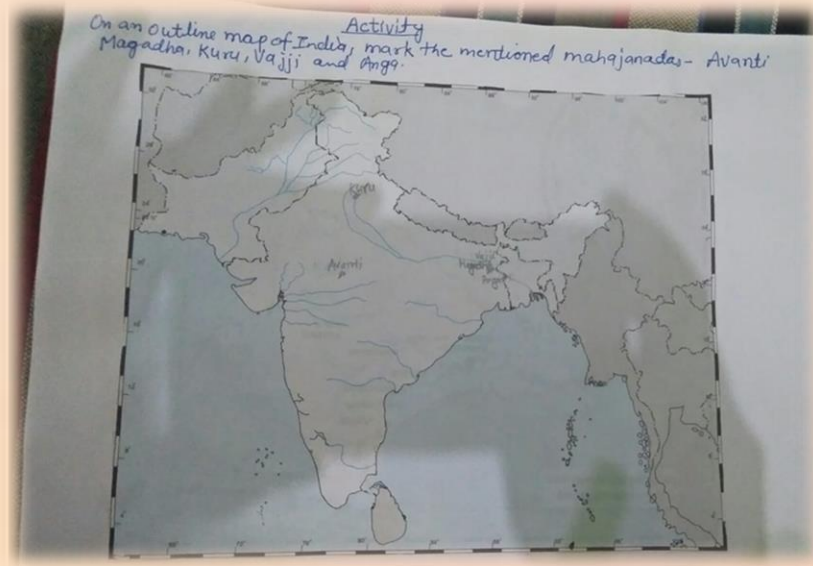 Activity
On an outline map of India, mark the mentioned mahajanadas- Avanti
Magadha, Kuru, Vajji and Anga.
Kuru
Avanti
Vajji
Magadha
Anga